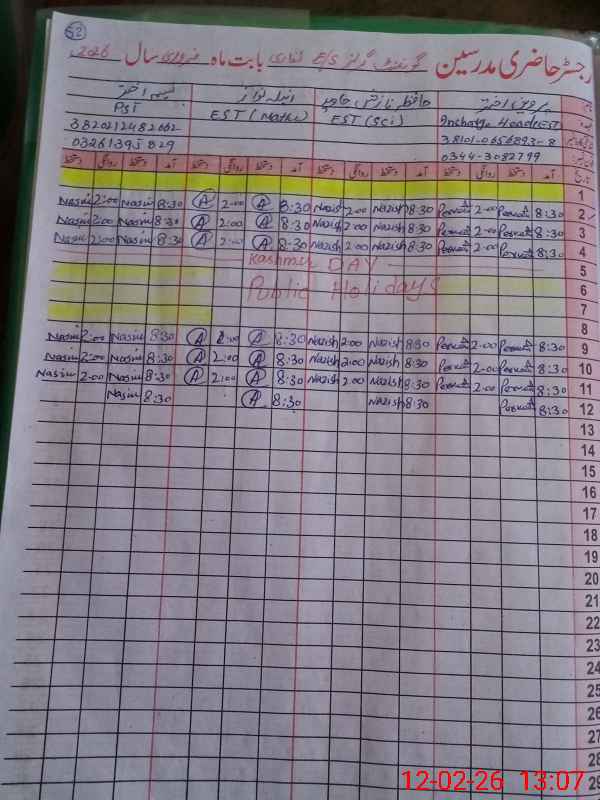 52
رجسٹر حاضری مدرسین گورنمنٹ گرلز E/S بابت ماہ فروری سال 2026
پروین اختر حافظہ نازش جاوید انیلہ نواز نسیم اختر
Incharge Headmist EST (Sci) EST (Maths) PST
38101-0656893-8 3820212482662
0344-3082799 03261395829
آمد دستخط روانگی دستخط آمد دستخط روانگی دستخط آمد دستخط روانگی دستخط آمد دستخط روانگی دستخط
1
Nasim 2:00 Nasim 8:30 A 2:00 A 8:30 Nazish 2:00 Nazish 8:30 Perveen 2:00 Perveen 8:30 2
Nasim 2:00 Nasim 8:30 A 2:00 A 8:30 Nazish 2:00 Nazish 8:30 Perveen 2:00 Perveen 8:30 3
Nasim 2:00 Nasim 8:30 A 2:00 A 8:30 Nazish 2:00 Nazish 8:30 Perveen 2:00 Perveen 8:30 4
Kashmir DAY 5
Public Holidays 6
7
8
Nasim 2:00 Nasim 8:30 A 2:00 A 8:30 Nazish 2:00 Nazish 8:30 Perveen 2:00 Perveen 8:30 9
Nasim 2:00 Nasim 8:30 A 2:00 A 8:30 Nazish 2:00 Nazish 8:30 Perveen 2:00 Perveen 8:30 10
Nasim 2:00 Nasim 8:30 A 2:00 A 8:30 Nazish 2:00 Nazish 8:30 Perveen 2:00 Perveen 8:30 11
Nasim 8:30 A 8:30 Nazish 8:30 Perveen 8:30 12
13
14
15
16
17
18
19
20
21
22
23
24
25
26
27
28
29
12-02-26 13:07